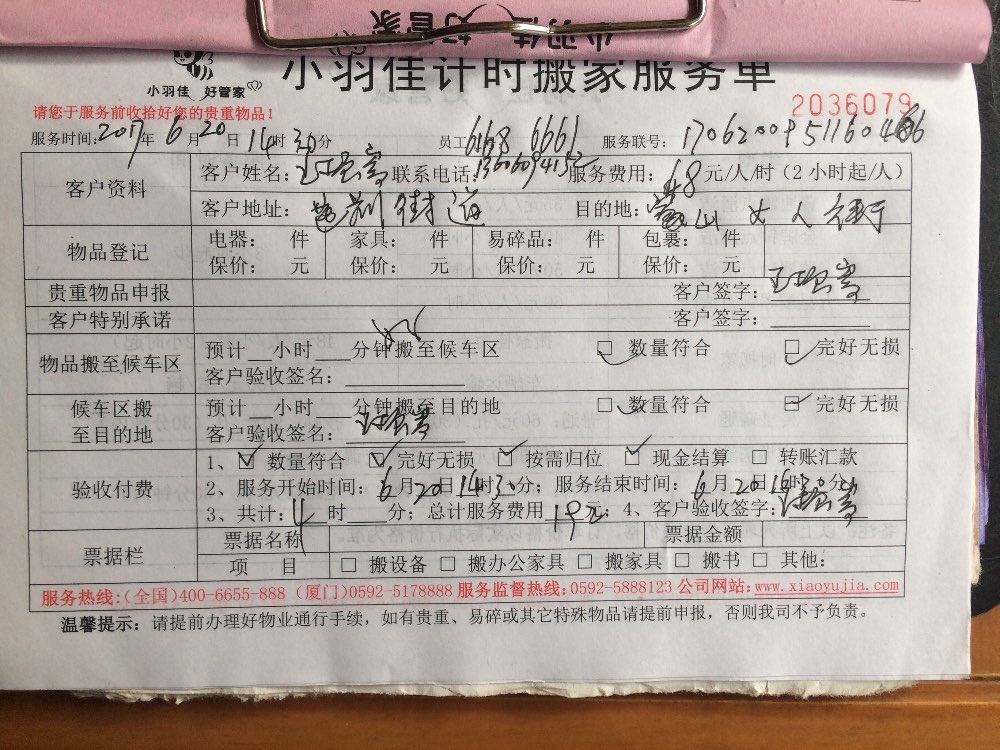 小羽佳 好管家
小羽佳 好管家
小羽佳计时搬家服务单
请您于服务前收拾好您的贵重物品！
2036079
服务时间:2017年 6月 20日 14时 30分 员工 6168 6661 服务联号:
客户资料
客户姓名: 联系电话: 服务费用: 68元/人/时（2小时起/人）
客户地址: 街道 目的地: 山 女人街
物品登记
电器: 件 家具: 件 易碎品: 件 包裹: 件
保价: 元 保价: 元 保价: 元 保价: 元
贵重物品申报 客户签字:
客户特别承诺 客户签字:
物品搬至候车区
预计__小时___分钟搬至候车区 □ 数量符合 □ 完好无损
客户验收签名:
候车区搬至目的地
预计__小时___分钟搬至目的地 □ 数量符合 □ 完好无损
客户验收签名:
验收付费
1、☑ 数量符合 ☑ 完好无损 ☑ 按需归位 ☑ 现金结算 □ 转账汇款
2、服务开始时间: 6月20日14时30分; 服务结束时间: 6月20日 时30分;
3、共计: 4时___分; 总计服务费用 元; 4、客户验收签字:
票据栏
票据名称 票据金额
项 目 □ 搬设备 □ 搬办公家具 □ 搬家具 □ 搬书 □ 其他:
服务热线:(全国)400-6655-888 (厦门)0592-5178888 服务监督热线:0592-5888123 公司网站:www.xiaoyujia.com
温馨提示: 请提前办理好物业通行手续，如有贵重、易碎或其它特殊物品请提前申报，否则我司不予负责。